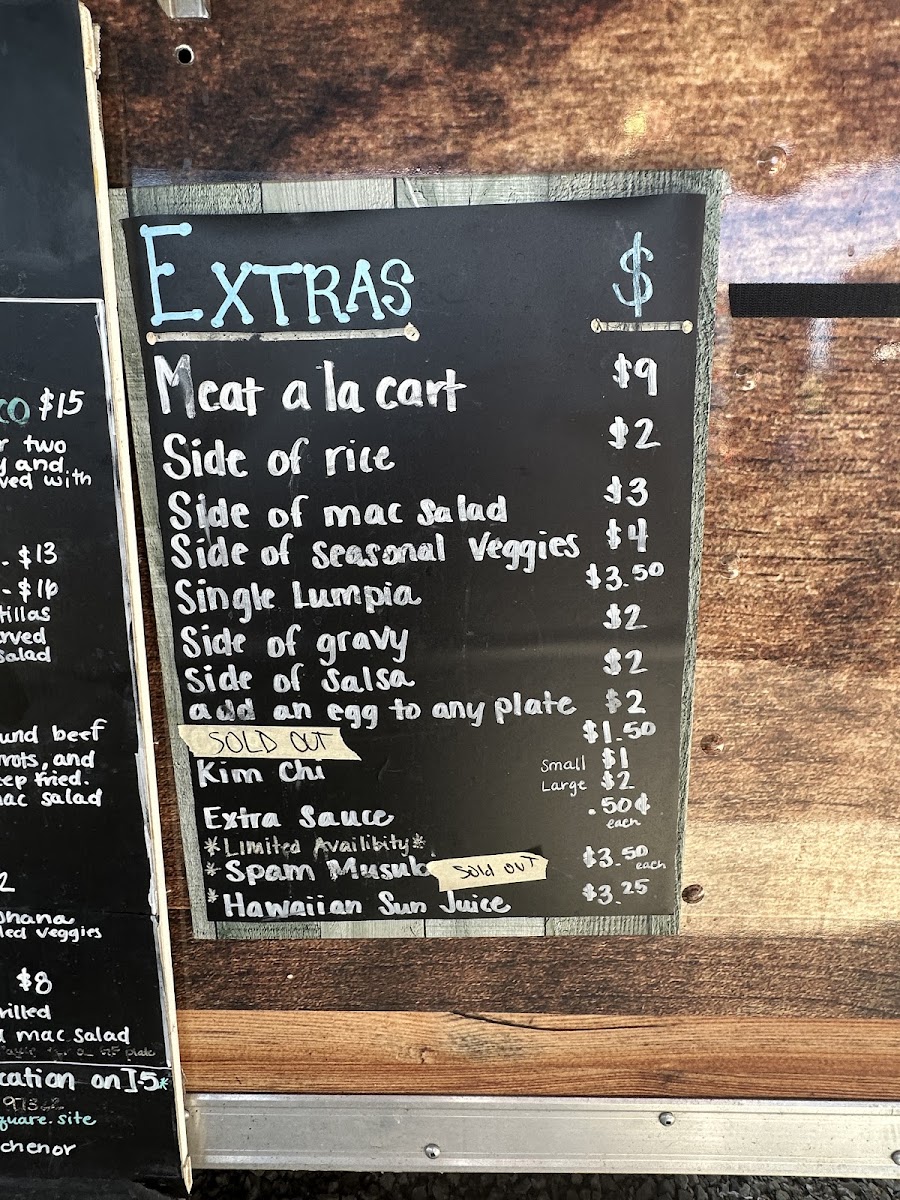 EXTRAS $
Meat a la cart $9
Side of rice $2
Side of mac salad $3
Side of seasonal veggies $4
Single Lumpia $3.50
Side of gravy $2
Side of salsa $2
add an egg to any plate $2
SOLD OUT $1.50
Kim Chi Small $1
Large $2
Extra Sauce .50¢
each
*Limited Availibity*
*Spam Musub Sold out $3.50 each
*Hawaiian Sun Juice $3.25
$15
two
and
with
$13
- $16
salad
beef
and
fried.
mac salad
2
veggies
$8
mac salad
on I-5*
.site